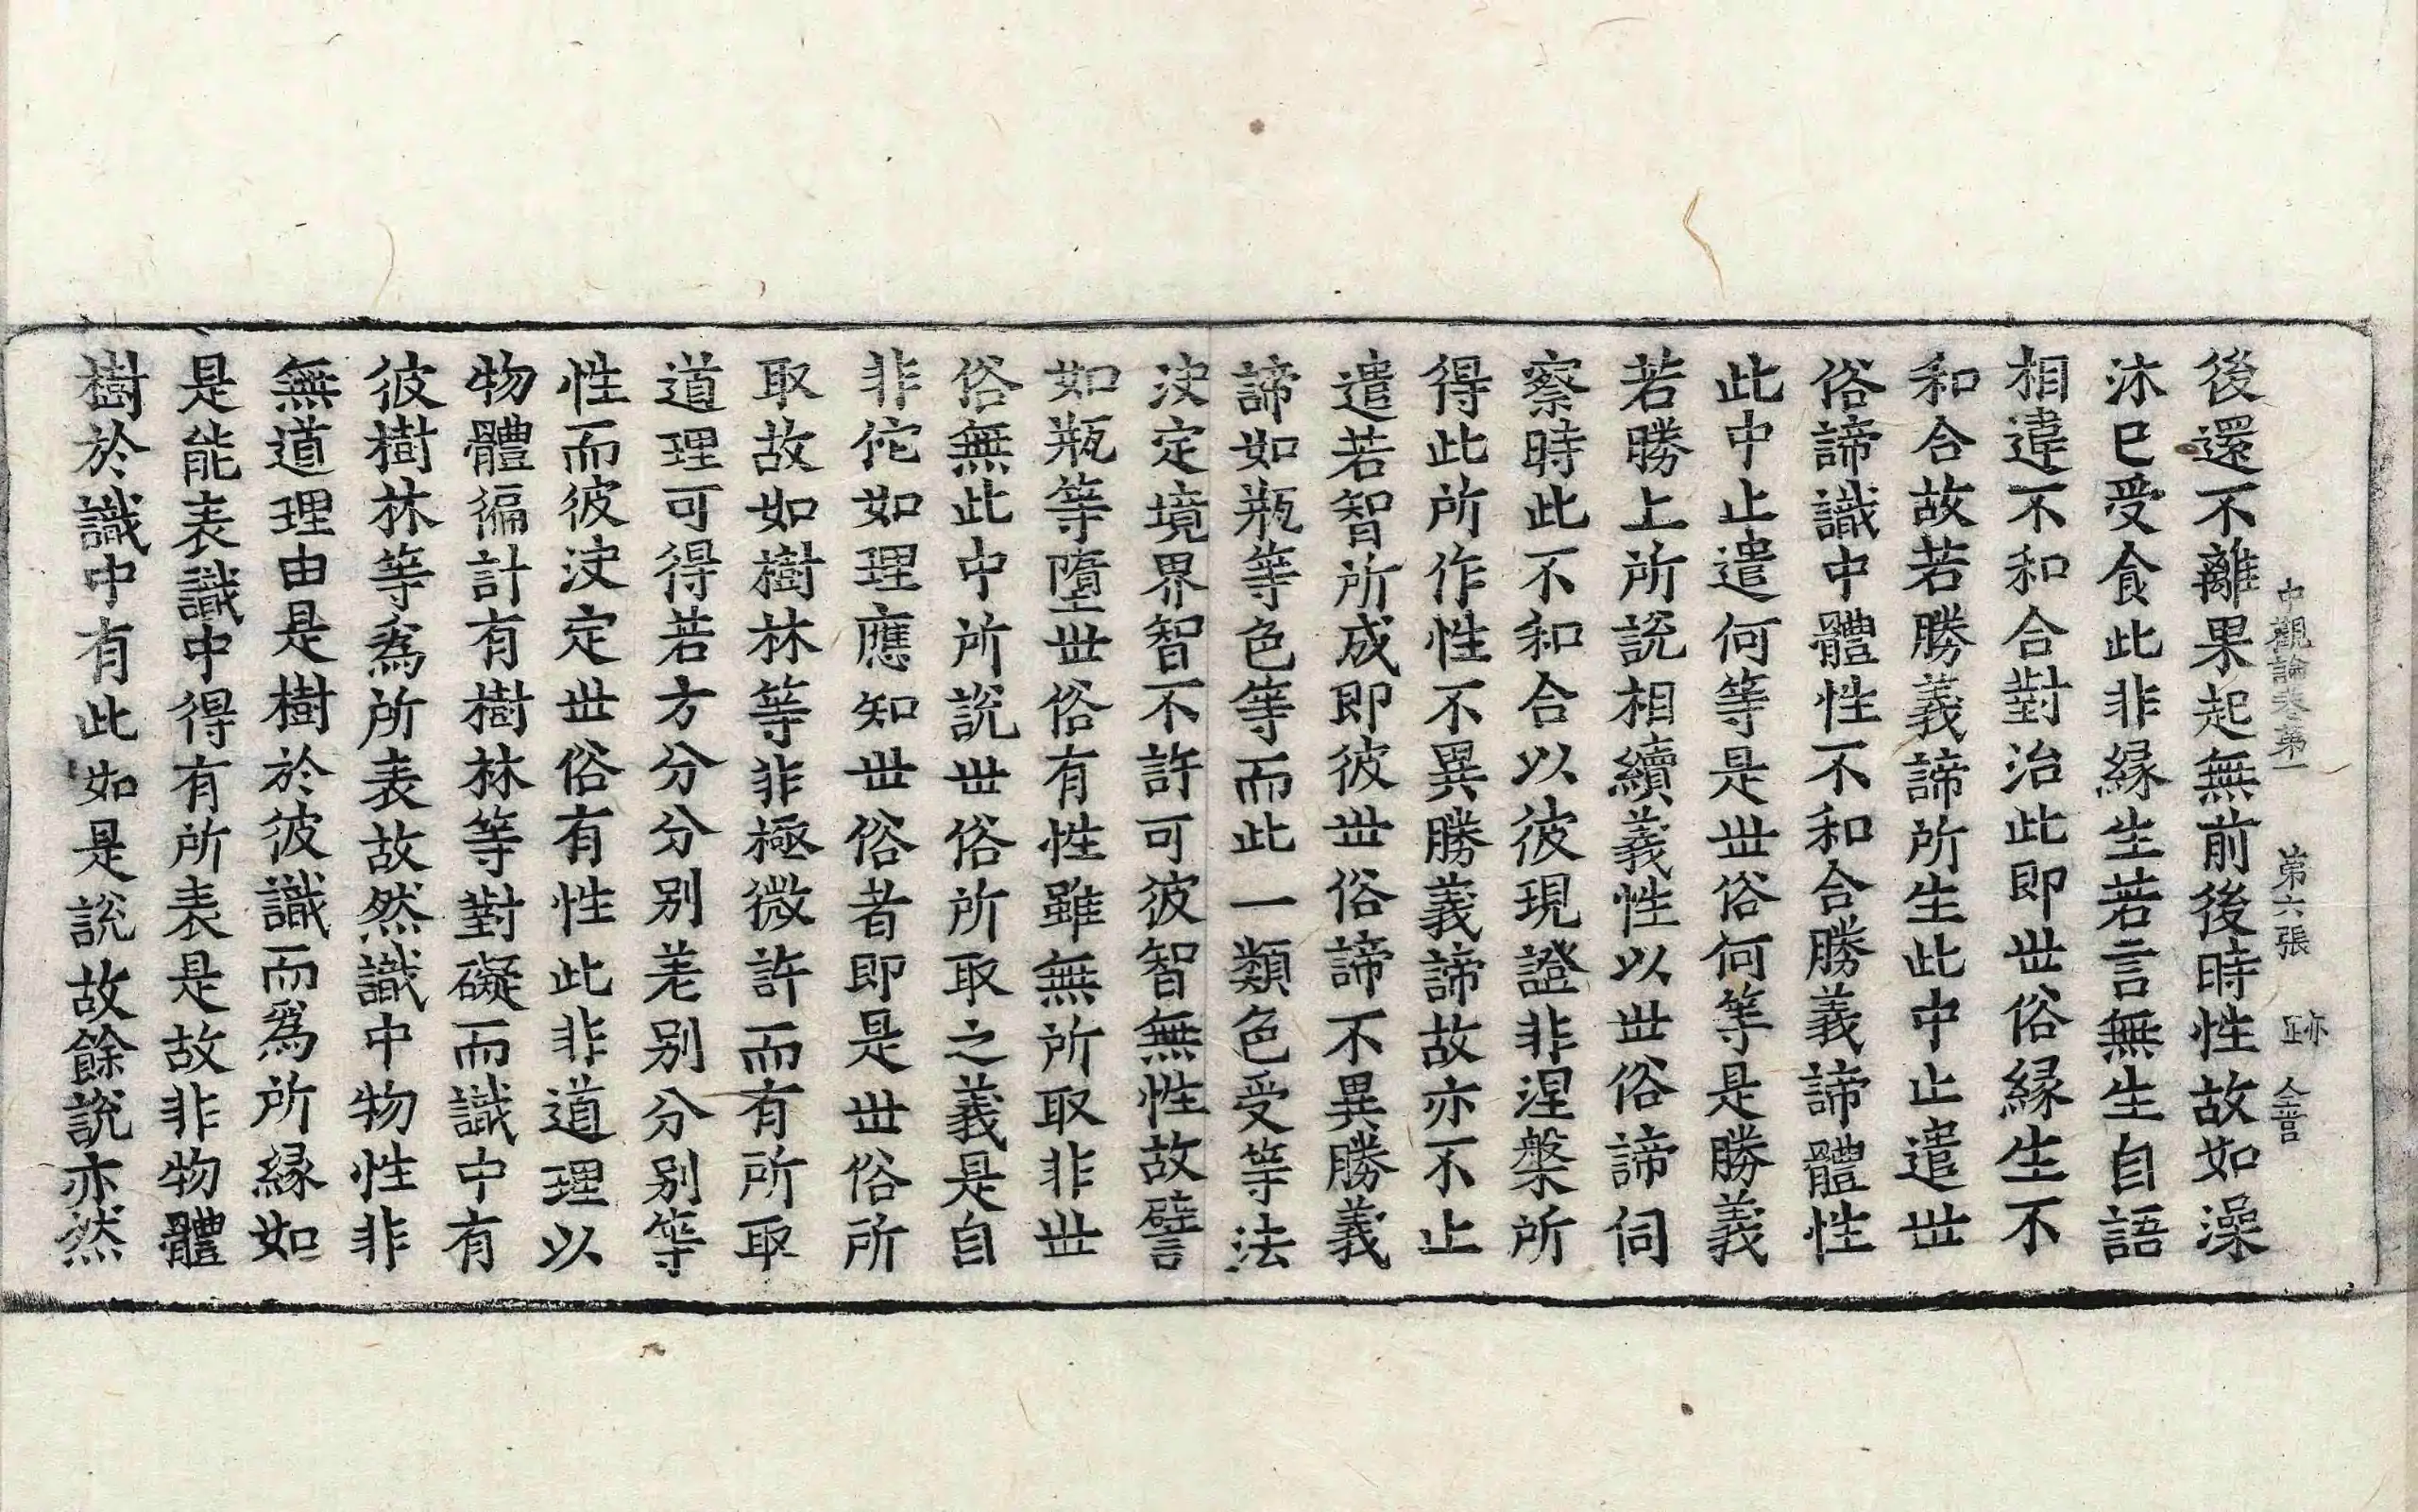 中觀論卷第一 第六張 亦正 仝言
後還不離果起無前後時性故如澡
沐已受食此非縁生若言無生自語
相違不和合對治此即世俗縁生不
和合故若勝義諦所生此中止遣世
俗諦識中體性不和合勝義諦體性
此中止遣何等是世俗何等是勝義
若勝上所說相續義性以世俗諦伺
察時此不和合以彼現證非涅槃所
得此所作性不異勝義諦故亦不止
遣若智所成即彼世俗諦不異勝義
諦如瓶等色等而此一類色受等法
決定境界智不許可彼智無性故譬
如瓶等墮世俗有性雖無所取非世
俗無此中所說世俗所取之義是自
非佗如理應知世俗者即是世俗所
取故如樹林等非極微許而有所取
道理可得若方分分别差别分别等
性而彼決定世俗有性此非道理以
物體徧計有樹林等對礙而識中有
彼樹林等爲所表故然識中物性非
無道理由是樹於彼識而爲所縁如
是能表識中得有所表是故非物體
樹於識中有此如是說故餘說亦然